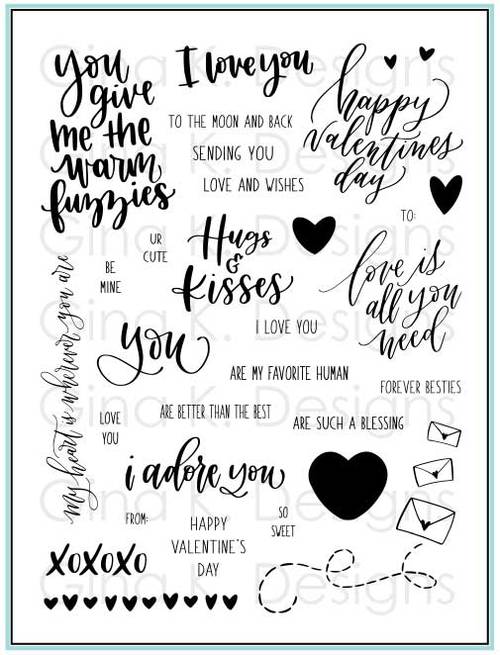 you
give
me the
warm
fuzzies
I love you
TO THE MOON AND BACK
SENDING YOU
LOVE AND WISHES
happy
valentines
day
TO:
UR
CUTE
BE
MINE
Hugs
&
Kisses
love is
all you
need
my heart is wherever you are
I LOVE YOU
you
ARE MY FAVORITE HUMAN
FOREVER BESTIES
ARE BETTER THAN THE BEST
ARE SUCH A BLESSING
LOVE
YOU
i adore you
FROM:
HAPPY
VALENTINE'S
DAY
SO
SWEET
XOXOXO
Gina K. Designs
Gina K. Designs
Gina K. Designs
Gina K. Designs
Gina K. Designs
Gina K. Designs
Gina K. Designs